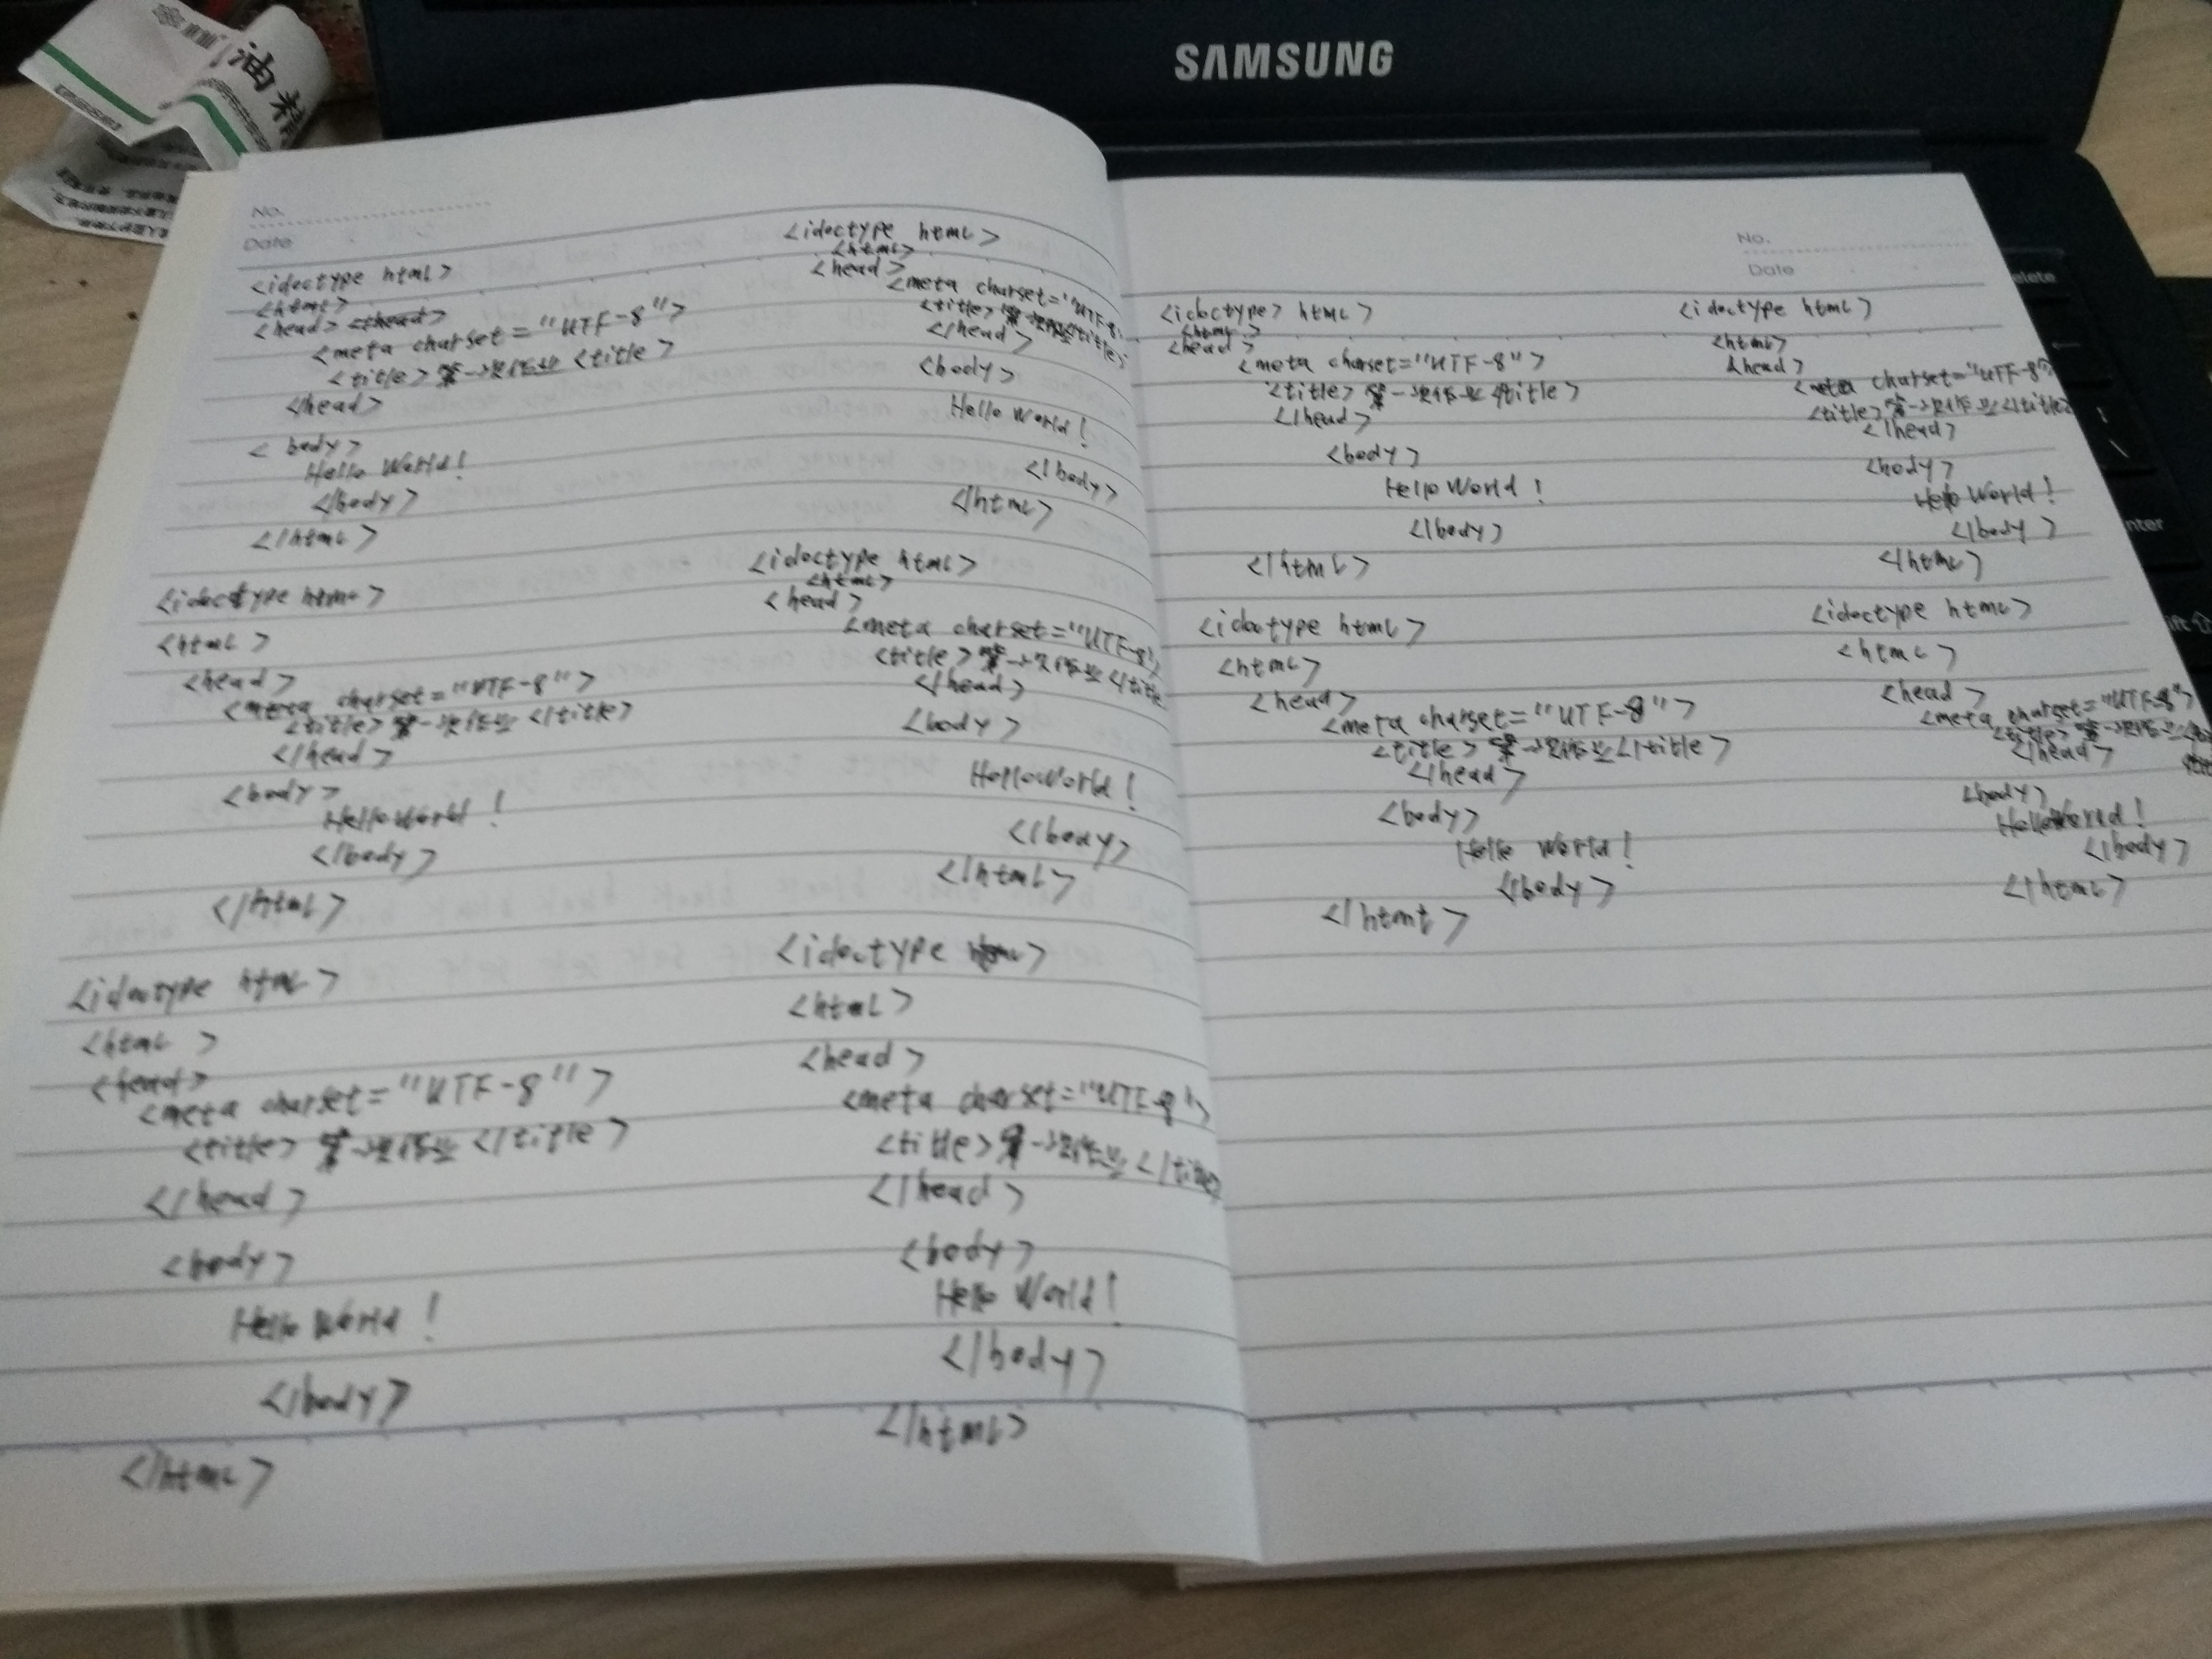 SAMSUNG
油精
No.
Date
<idoctype html>
<html>
<head> <head>
<meta charset="UTF-8">
<title>第一次作业 <title>
</head>
<body>
Hello World!
</body>
</html>
<idoctype html>
<html>
<head>
<meta charset="UTF-8">
<title>第一次作业 </title>
</head>
<body>
Hello World!
</body>
</html>
<idoctype html>
<html>
<head>
<meta charset="UTF-8">
<title>第一次作业 </title>
</head>
<body>
Hello World!
</body>
</html>
<idoctype html>
<html>
<head>
<meta charset="UTF-8
<title>第一次作业</title>
</head>
<body>
Hello World!
</body>
</html>
<idoctype html>
<html>
<head>
<meta charset="UTF-8"
<title>第一次作业 </title
</head>
<body>
Hello World!
</body>
</html>
<idoctype html>
<html>
<head>
<meta charset="UTF-8">
<title>第一次作业 </title>
</head>
<body>
Hello World!
</body>
</html>
No.
Date
<idoctype> html>
<html>
<head>
<meta charset="UTF-8">
<title>第一次作业 </title>
</head>
<body>
Hello World!
</body>
</html>
<idoctype html>
<html>
<head>
<meta charset="UTF-8">
<title>第一次作业</title>
</head>
<body>
Hello World!
</body>
</html>
<idoctype html>
<html>
<head>
<meta charset="UTF-8">
<title>第一次作业</title>
</head>
<body>
Hello World!
</body>
</html>
<idoctype html>
<html>
<head>
<meta charset="UTF-8">
<title>第一次作业</
</head>
<body>
Hello World!
</body>
</html>
elete
nter
ift